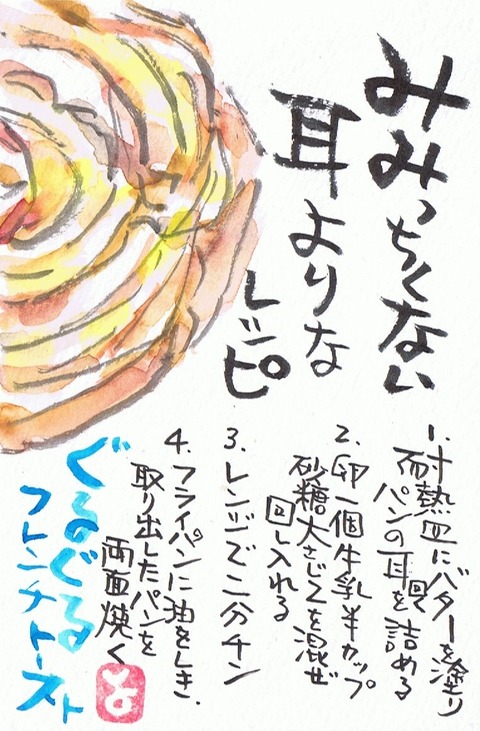 みみっちくない
耳よりな
レシピ
1.耐熱皿にバターを塗り
パンの耳を詰める
2.卵一個牛乳半カップ
砂糖大さじ2を混ぜ
回し入れる
3.レンジで二分チン
4.フライパンに油をしき、
取り出したパンを
両面焼く
ぐるぐる
フレンチトースト